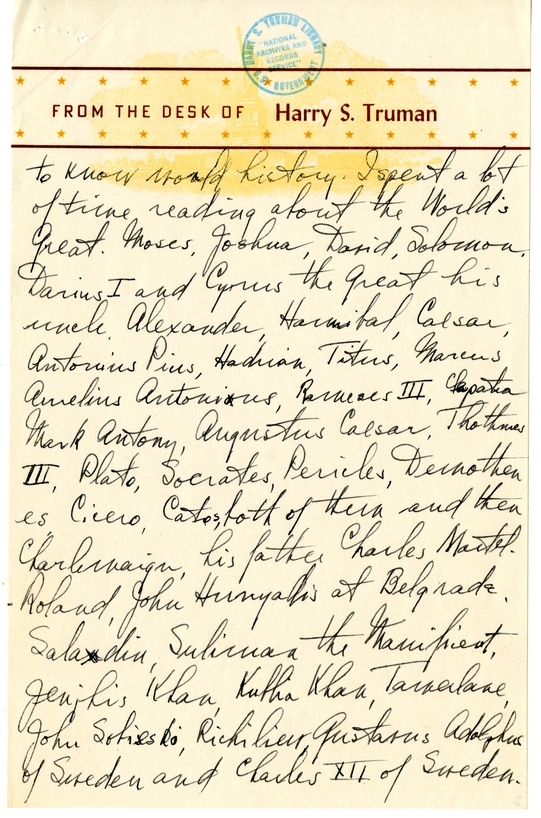 HARRY S. TRUMAN LIBRARY
"NATIONAL
ARCHIVES AND
RECORDS
SERVICE"
U.S. GOVERNMENT
FROM THE DESK OF Harry S. Truman
to know world history. I spent a lot
of time reading about the World's
Great. Moses, Joshua, David, Solomon,
Darius I and Cyrus the Great his
uncle, Alexander, Hannibal, Caesar,
Antonius Pius, Hadrian, Titus, Marcus
Aurelius Antonius, Rameses III,
Mark Antony, Augustus Caesar, Thothmes
III, Plato, Socrates, Pericles, Demosthen
es Cicero, Catos, both of them and then
Charlemaign, his father Charles Martel.
Roland, John Hunyadis at Belgrade.
Saladin, Suliman the Manifient,
Jenghis Khan, Kubla Khan, Tamerlane,
John Sobieski, Richilieu, Gustavus Adolphus
of Sweden and Charles XII of Sweden.